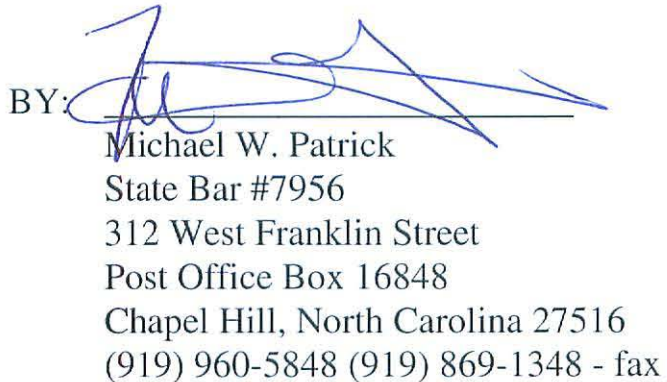 BY:
Michael W. Patrick
State Bar #7956
312 West Franklin Street
Post Office Box 16848
Chapel Hill, North Carolina 27516
(919) 960-5848 (919) 869-1348 - fax